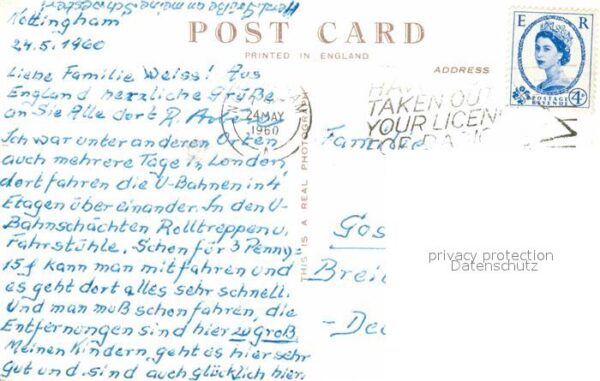 Nottingham
24.5.1960
POST CARD
PRINTED IN ENGLAND
ADDRESS
Liebe Familie Weiss! Aus
England herzliche Grüße
an Sie Alle dort
Ich war unter anderen Orten
auch mehrere Tage in London,
dort fahren die U-Bahnen in 4
Etagen übereinander. In den U-
Bahnschächten Rolltreppen u.
Fahrstühle. Schon für 3 Penny-
15 f kann man mitfahren und
es geht dort alles sehr schnell.
Und man muß schon fahren, die
Entfernungen sind hier zu groß.
Meinen Kindern geht es hier sehr
gut und sind auch glücklich hier.
THIS IS A REAL PHOTOGRAPH
24 MAY
1960
TAKEN OUT
YOUR LICEN
E R
POSTAGE
REVENUE
4d
Gos
Brei
privacy protection
Datenschutz